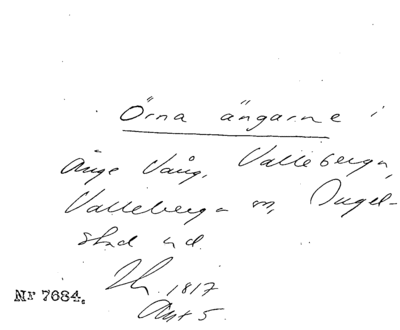 Örna ängarne i
Änge Vång, Valleberga,
Valleberga sn, Ingel-
stad hd.
1817
Akt 5.
Nr 7684.